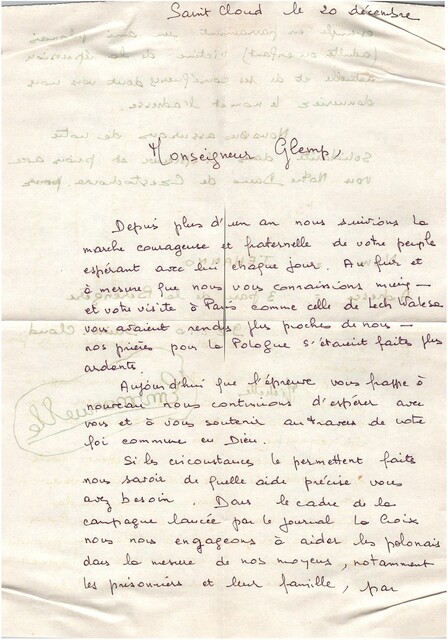 Saint Cloud le 20 décembre
Monseigneur Glemp,
Depuis plus d'un an nous suivions la
marche courageuse et fraternelle de votre peuple
espérant avec lui chaque jour. Au fur et
à mesure que nous vous connaissions mieux -
et votre visite à Paris comme celle de Lech Walesa
vous avaient rendus plus proches de nous -
nos prières pour la Pologne s'étaient faites plus
ardentes.
Aujourd'hui que l'épreuve vous frappe à
nouveau nous continuons d'espérer avec
vous et à vous soutenir au travers de votre
foi commune en Dieu.
Si les circonstances le permettent faits
nous savoir de quelle aide précise vous
avez besoin. Dans le cadre de la
campagne lancée par le journal La Croix
nous nous engageons à aider les polonais
dans la mesure de nos moyens, notamment
les prisonniers et leur famille, par
Emmanuelle